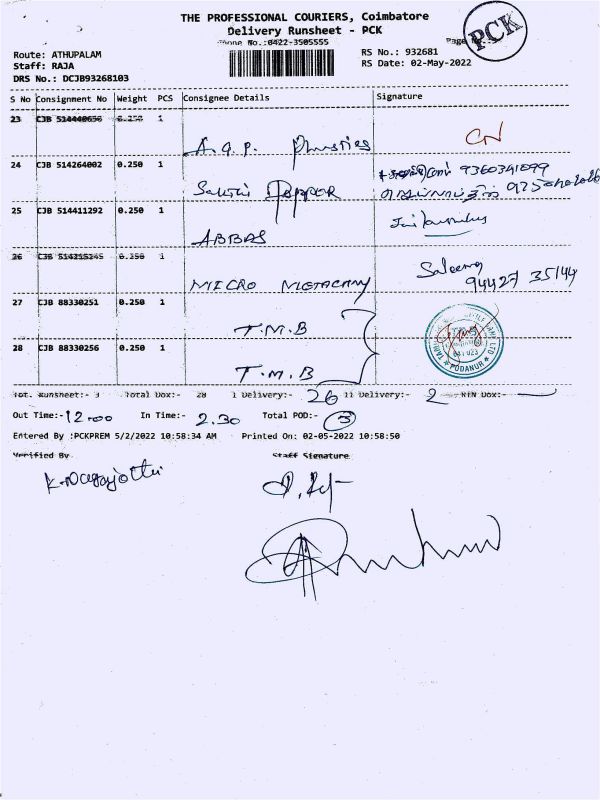 THE PROFESSIONAL COURIERS, Coimbatore
Delivery Runsheet - PCK
PCK
Phone No.:0422-3505555
Page
Route: ATHUPALAM
RS No.: 932681
Staff: RAJA
RS Date: 02-May-2022
DRS No.: DCJB93268103
S No Consignment No Weight PCS Consignee Details Signature
23 CJB 514440656 0.250 1
A.G.P. CN
24 CJB 514264002 0.250 1
9360341099
25 CJB 514411292 0.250 1
ABBAS
26 CJB 514215245 0.250 1
Saleem
MICRO 94427 35144
27 CJB 88330251 0.250 1
T.M.B
28 CJB 88330256 0.250 1
T.M.B
PODANUR
Tot. Runsheet:- 3 Total Dox:- 28 I Delivery:- 26 II Delivery:- 2 RTN Dox:-
Out Time:- 12.00 In Time:- 2.30 Total POD:- 3
Entered By :PCKPREM 5/2/2022 10:58:34 AM Printed On: 02-05-2022 10:58:50
Verified By Staff Signature
K. Nagajothi